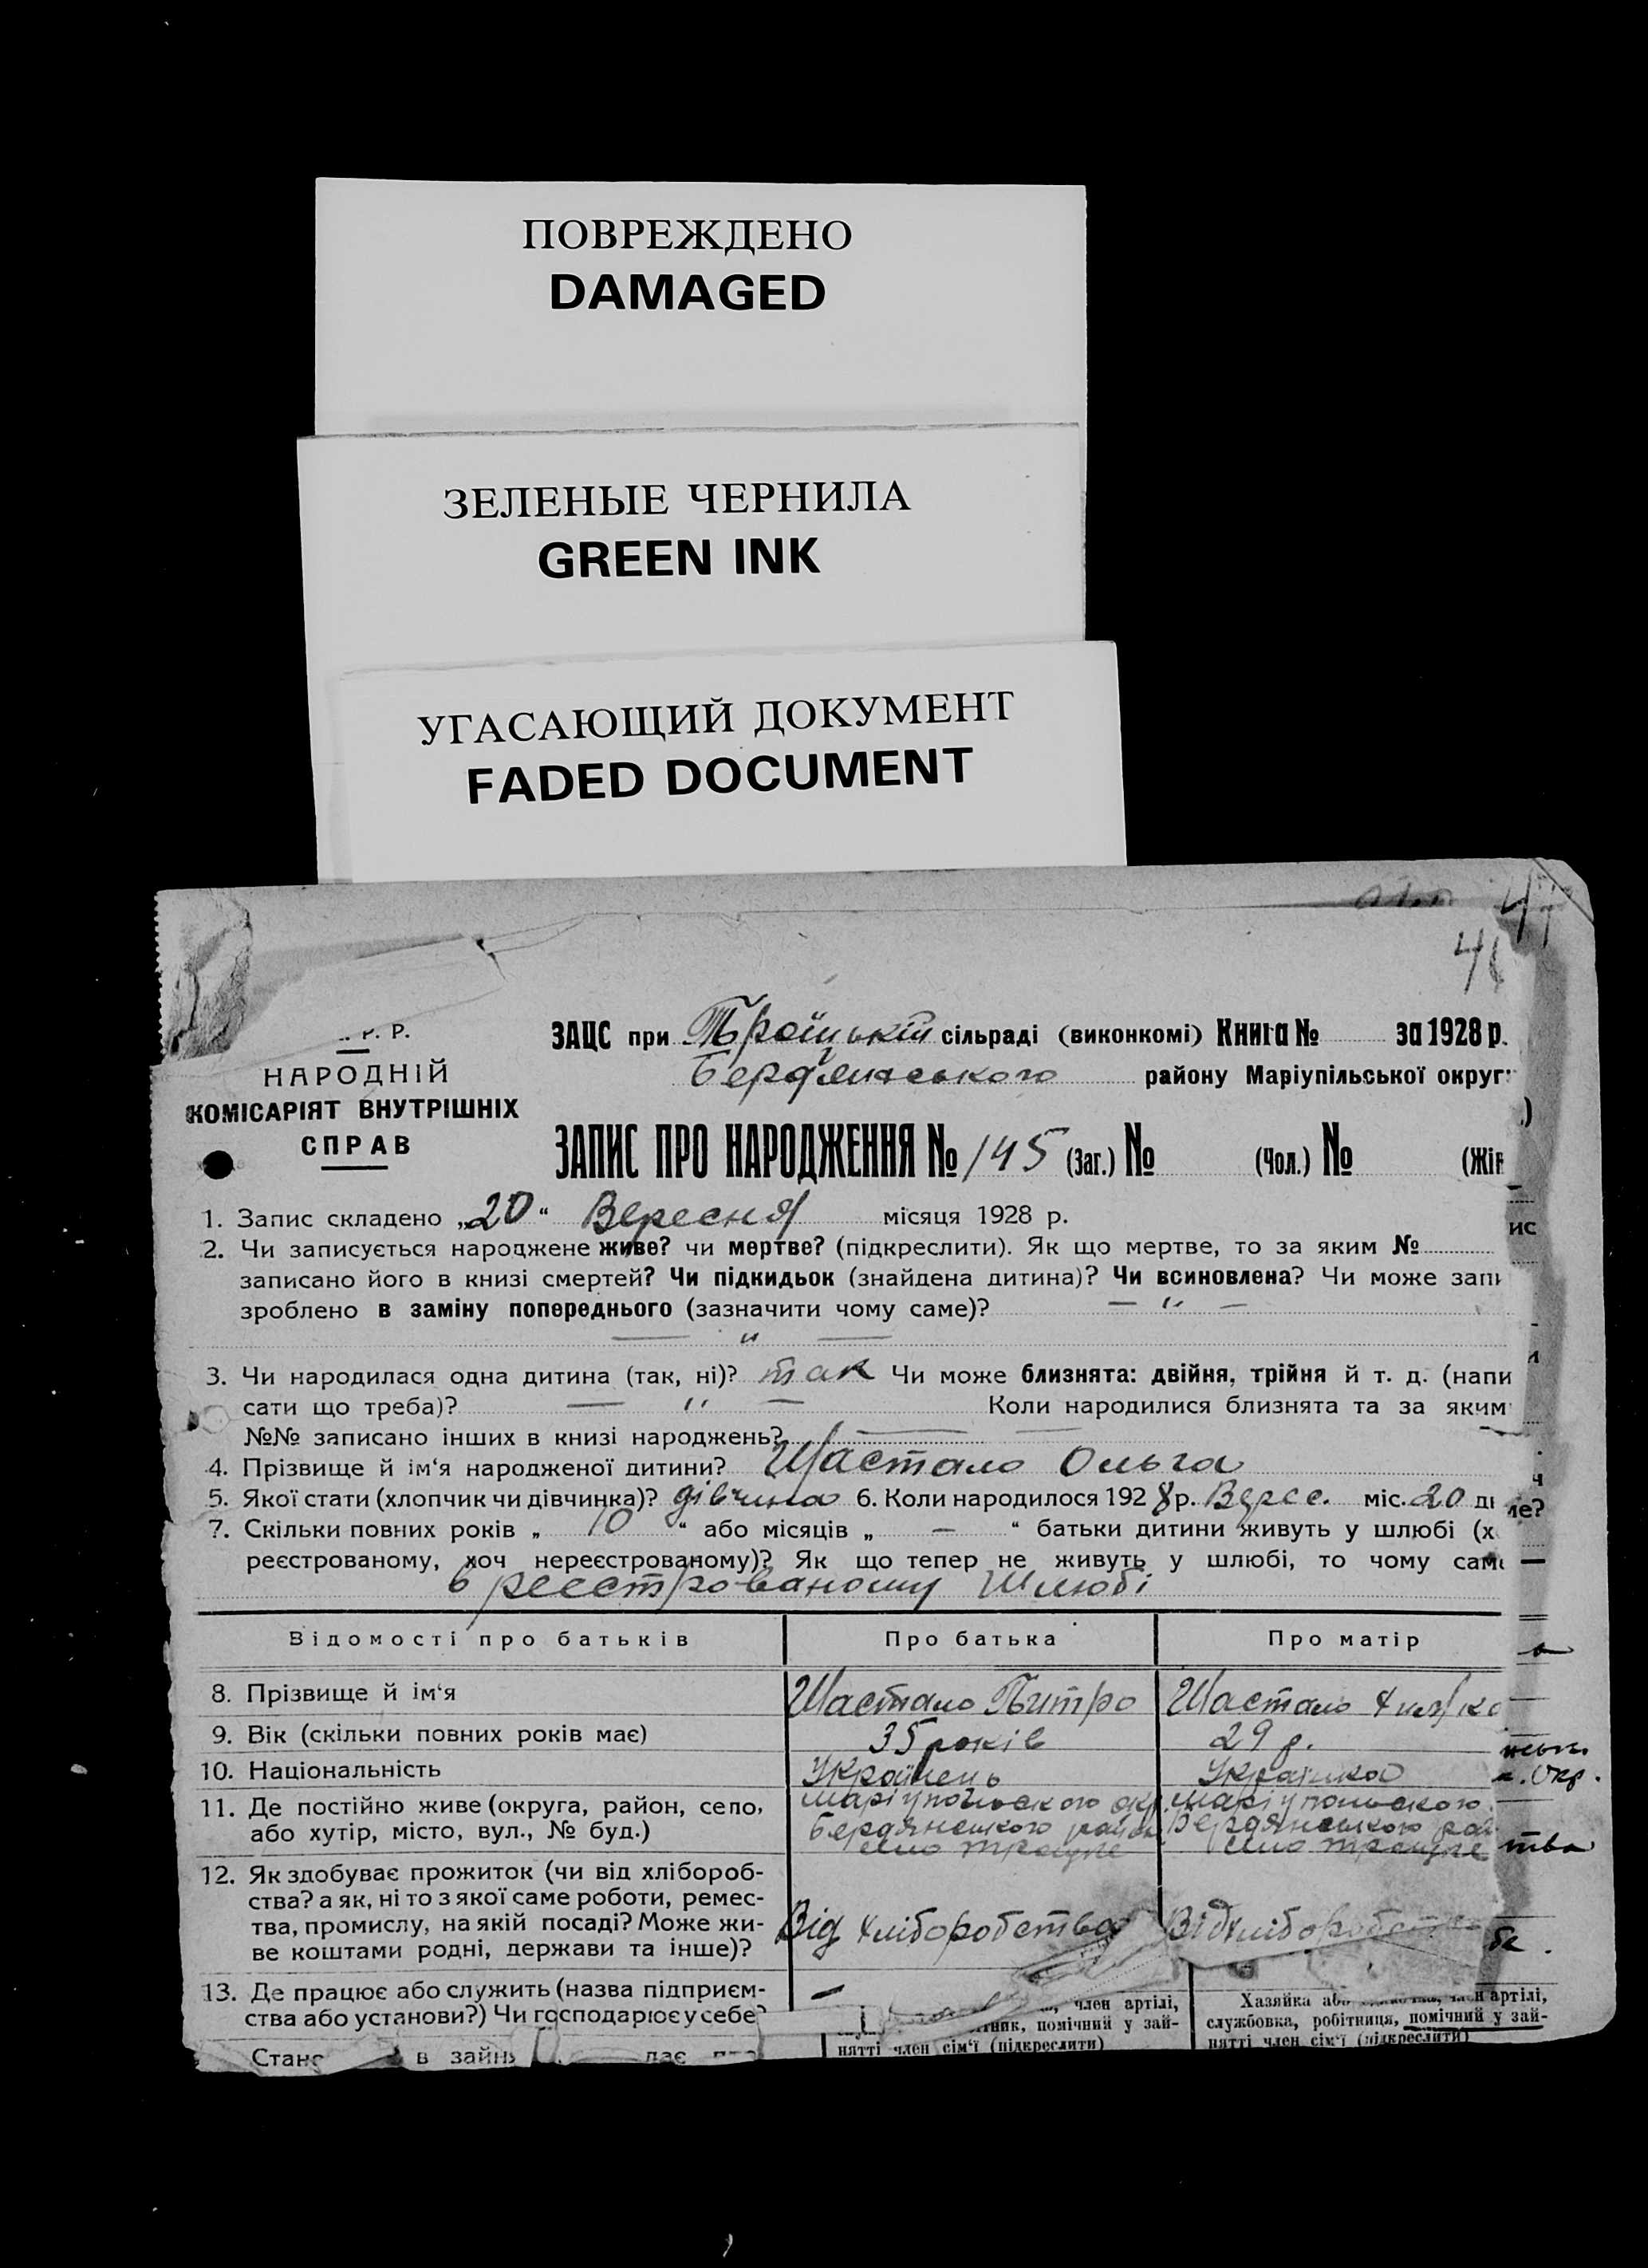 ПОВРЕЖДЕНО
DAMAGED
ЗЕЛЕНЫЕ ЧЕРНИЛА
GREEN INK
УГАСАЮЩИЙ ДОКУМЕНТ
FADED DOCUMENT
47
Р. Р.
НАРОДНІЙ
КОМІСАРІЯТ ВНУТРІШНІХ
СПРАВ
ЗАЦС при Троїцькій сільраді (виконкомі) Книга № за 1928 р.
Бердянського району Маріупільської округ
ЗАПИС ПРО НАРОДЖЕННЯ № 145 (Заг.) № (Чол.) № (Жін
1. Запис складено „20“ Вересня місяця 1928 р.
2. Чи записується народжене живе? чи мертве? (підкреслити). Як що мертве, то за яким №
записано його в книзі смертей? Чи підкидьок (знайдена дитина)? Чи всиновлена? Чи може запи
зроблено в заміну попереднього (зазначити чому саме)? — „ —
— „ —
3. Чи народилася одна дитина (так, ні)? так Чи може близнята: двійня, трійня й т. д. (напи
сати що треба)? — „ — Коли народилися близнята та за яким
№№ записано інших в книзі народжень? —
4. Прізвище й ім‘я народженої дитини? Шастало Ольга
5. Якої стати (хлопчик чи дівчинка)? дівчина 6. Коли народилося 1928 р. Верес. міс. 20 дн
7. Скільки повних років „ 10 “ або місяців „ — “ батьки дитини живуть у шлюбі (х
реєстрованому, хоч нереєстрованому)? Як що тепер не живуть у шлюбі, то чому саме
в реєстрованому шлюбі
Відомості про батьків Про батька Про матір
8. Прізвище й ім‘я Шастало Питро Шастало
9. Вік (скільки повних років має) 35 років 29 р.
10. Національність Українець Українка
11. Де постійно живе (округа, район, село, Маріупольского окр. Маріупольского
або хутір, місто, вул., № буд.) Бердянського район Бердянського рай
село Троіцке село Троіцке
12. Як здобуває прожиток (чи від хлібороб-
ства? а як, ні то з якої саме роботи, ремес-
тва, промислу, на якій посаді? Може жи- Від хліборобства Від хліборобст
ве коштами родні, держави та інше)?
13. Де працює або служить (назва підприєм- —
ства або установи?) Чи господарює у себе?
член артілі, Хазяйка або артілі,
помічний у зай- службовка, робітниця, помічний у зай-
нятті член сім‘ї (підкреслити) нятті член сім‘ї (підкреслити)
в